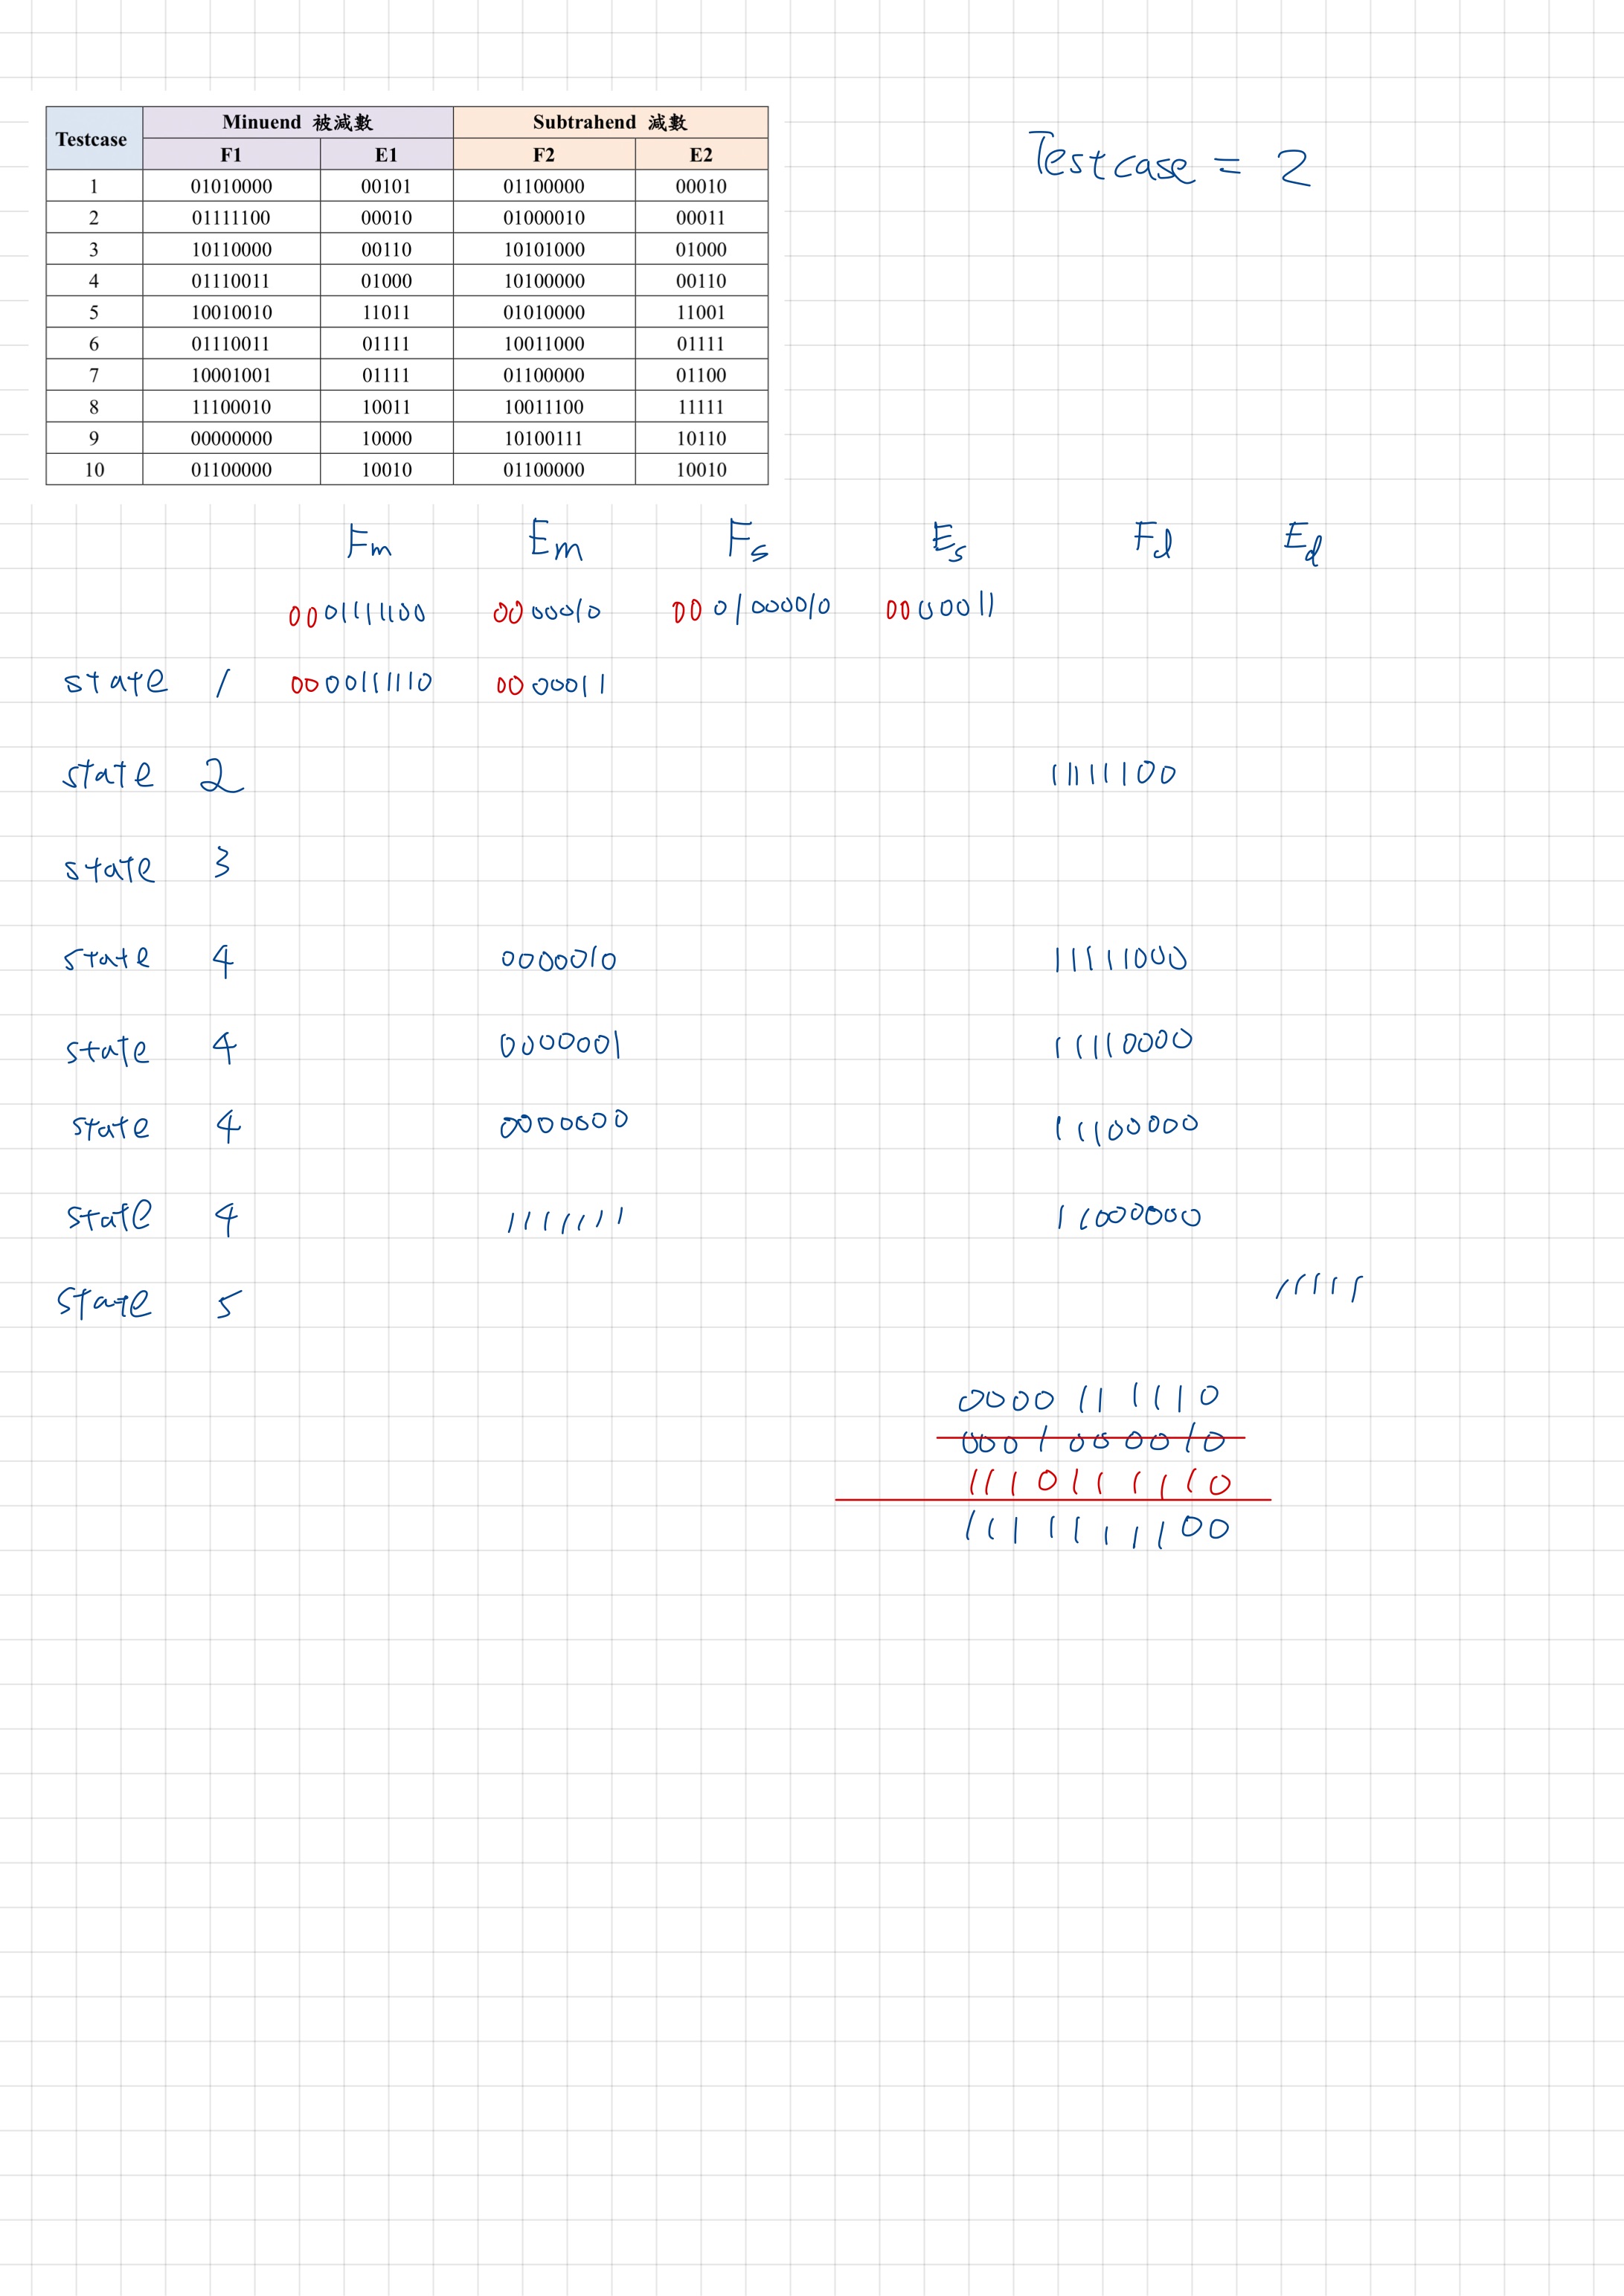 Testcase Minuend 被減數 Subtrahend 減數
F1 E1 F2 E2
1 01010000 00101 01100000 00010
2 01111100 00010 01000010 00011
3 10110000 00110 10101000 01000
4 01110011 01000 10100000 00110
5 10010010 11011 01010000 11001
6 01110011 01111 10011000 01111
7 10001001 01111 01100000 01100
8 11100010 10011 10011100 11111
9 00000000 10000 10100111 10110
10 01100000 10010 01100000 10010
Testcase = 2
Fm Em Fs Es Fd Ed
0001111100 0000010 0001000010 0000011
state 1 0000111110 0000011
state 2 11111100
state 3
state 4 0000010 11111000
state 4 0000001 11110000
state 4 0000000 11100000
state 4 1111111 11000000
state 5 11111
0000111110
0001000010
1110111110
1111111100